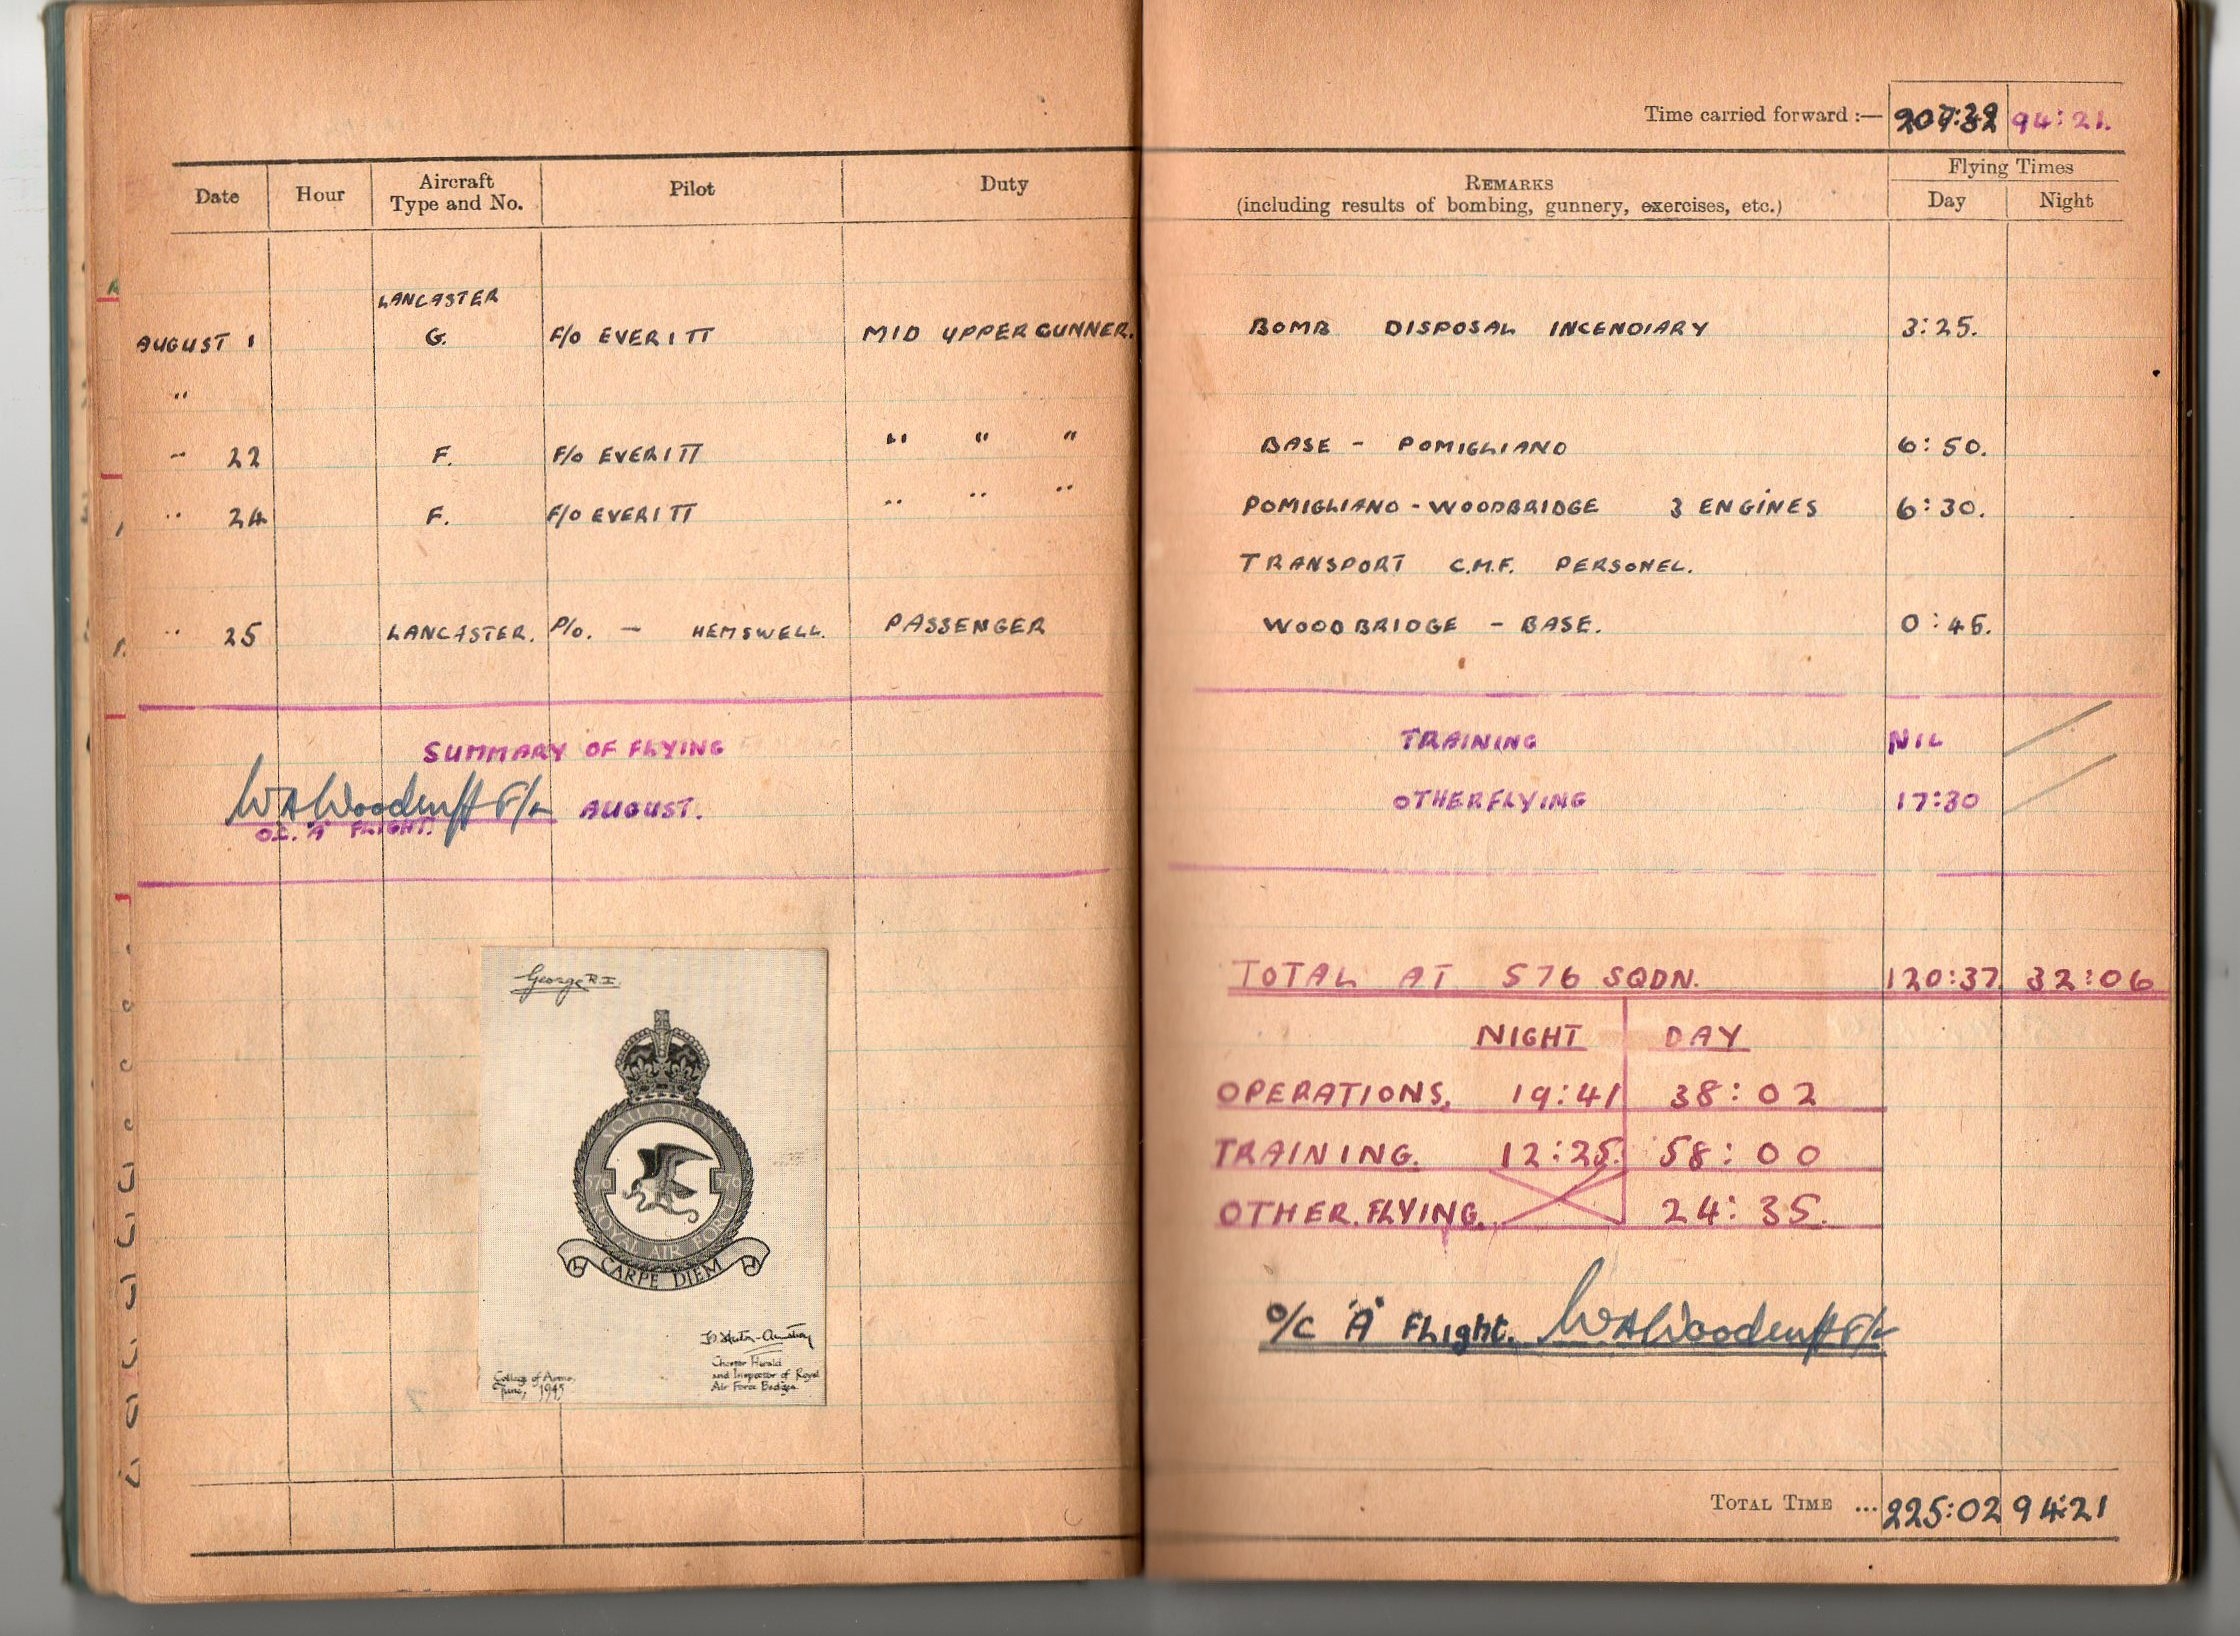 Time carried forward :— 207:32 94:21.
Date Hour Aircraft Type and No. Pilot Duty
REMARKS (including results of bombing, gunnery, exercises, etc.) Flying Times Day Night
LANCASTER
AUGUST 1 G. F/O EVERITT MID UPPER GUNNER. BOMB DISPOSAL INCENDIARY 3:25.
"
" 22 F. F/O EVERITT " " " BASE - POMIGLIANO 6:50.
" 24 F. F/O EVERITT " " " POMIGLIANO - WOODBRIDGE 3 ENGINES 6:30.
TRANSPORT C.M.F. PERSONEL.
" 25 LANCASTER. P/O. — HEMSWELL. PASSENGER WOODBRIDGE - BASE. 0:45.
SUMMARY OF FLYING TRAINING NIL
WAWoodruff F/L AUGUST. OTHER FLYING 17:30
O.C. "A" FLIGHT.
TOTAL AT 576 SQDN. 120:37 32:06
NIGHT DAY
OPERATIONS. 19:41 38:02
TRAINING. 12:25. 58:00
OTHER. FLYING. 24:35.
O/C "A" Flight. WAWoodruff F/L
George R.I.
SQUADRON
576 576
ROYAL AIR FORCE
CARPE DIEM
College of Arms,
June, 1945
Chester Herald
and Inspector of Royal
Air Force Badges
TOTAL TIME ... 225:02 94:21